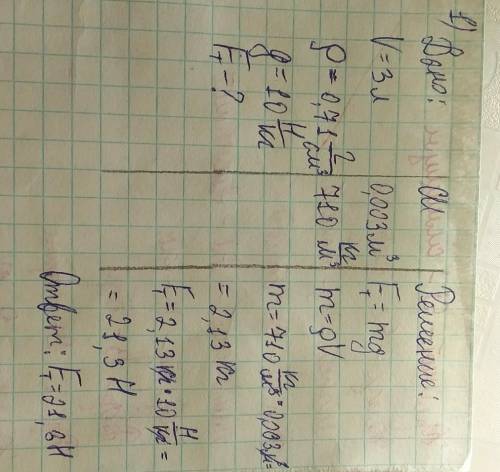 1) Дано:
V = 3 л
ρ = 0,71 г/см³
g = 10 Н/кг
Fт = ?
СИ
0,003 м³
710 кг/м³
Решение:
Fт = mg
m = ρV
m = 710 кг/м³ · 0,003 м³ =
= 2,13 кг
Fт = 2,13 кг · 10 Н/кг =
= 21,3 Н
Ответ: Fт = 21,3 Н